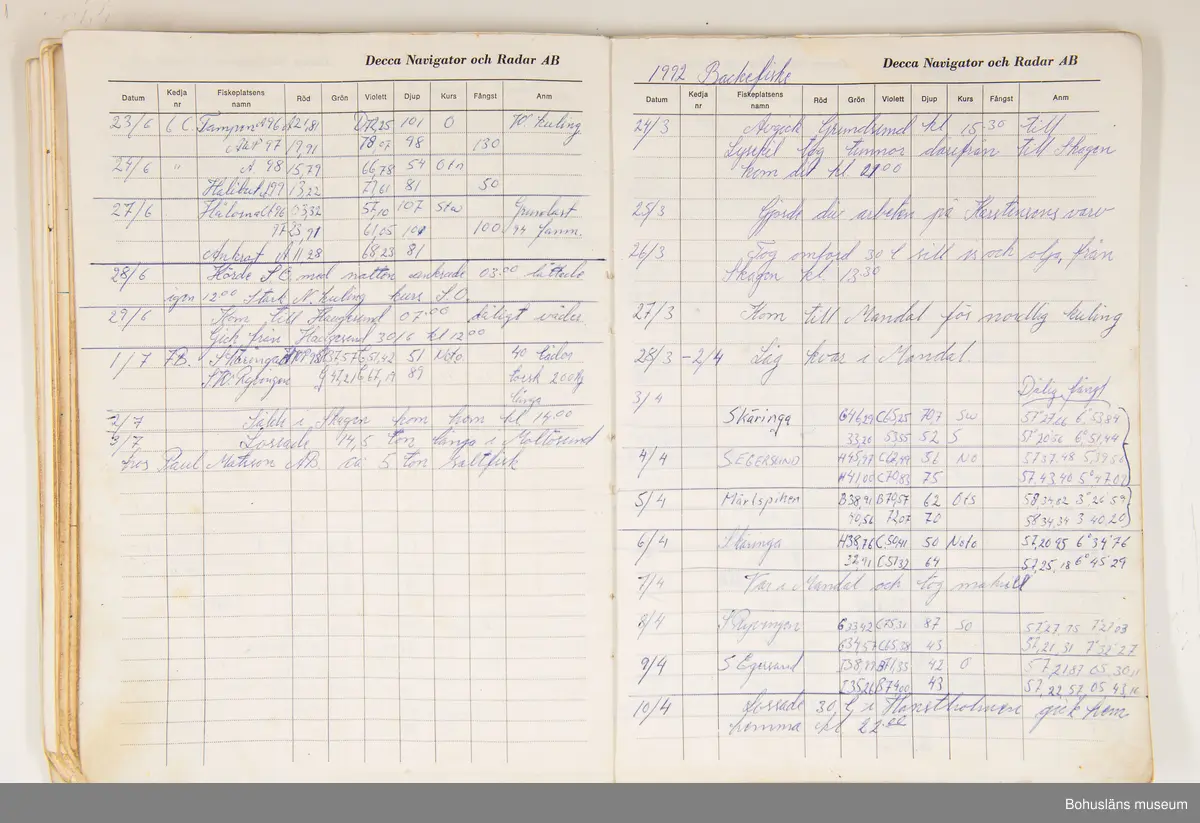 Decca Navigator och Radar AB
Datum Kedja nr Fiskeplatsens namn Röd Grön Violett Djup Kurs Fångst Anm
23/6 6 C. Tampon A96 101 O kuling
97 98 130
24/6 " A 98 15,79 66,78 54
Halibut 199 13,22 81 50
27/6 96 03,32 57,10 107
97 23,91 61,05 100 94 famn.
Ankrast A 11.28 68 23 81
28/6 Hörde S.O. med natten ankrade 03.00 lättade
igen 12.00 Stark N. kuling kurs S.O.
29/6 Kom till Haugesund 07.00 dåligt väder.
Gick från Haugesund 30/6 kl 12.00
1/7 7B. 51 Noto. 40 lådor
S.W. Ryvingen 89 torsk 200 kg
långa
2/7 i Skagen kom hem kl 14.00
3/7 Lossade 14,5 ton långa i Mollösund
hos Paul AB. ca 5 ton saltfisk
1992 Backefiske
Decca Navigator och Radar AB
Datum Kedja nr Fiskeplatsens namn Röd Grön Violett Djup Kurs Fångst Anm
24/3 Avgick Grundsund kl 15.30 till
Lysekil tog tunnor därifrån till Skagen
kom dit kl 21.00
25/3 Gjorde div arbeten på Karstensens varv
26/3 Tog ombord 30 l sill is och olja, från
Skagen kl 13.30
27/3 Kom till Mandal för nordlig kuling
28/3 - 2/4 Låg kvar i Mandal.
3/4 Dålig fångst
Skäringa G46,29 C65,25 70,7 SW 57°27,66 6°53,84
33,20 53,55 52 S 57°20,56 6°51,44
4/4 S EGERSUND H45,97 C62,99 51 NO 57.37.48 5.39.56
H41,00 C70,83 75 57.43.40 5°47.02
5/4 Märlspiken B38,91 B79,57 62 Ots 58.34.02 3°26'59
40,56 72,07 70 58.34,34 3 40.20
6/4 Skäringa H38,76 C.50,41 50 Noto 57,20 95 6°34'76
32,91 C51,32 64 57,25,18 6°45'29
7/4 Var i Mandal och tog makrill
8/4 S Ryvingen G23,42 C75,31 87 SO 57°27.75 7°27.03
G34,57 C65,28 43 57,21,31 7°32'27
9/4 S Egersund 42 O 57,21,87 05.30,11
I35,26 B74,00 43 57,22,57, 05,43,10
10/4 Lossade 30 l i Hanstholmen gick hem
hemma kl 22.00
Bohusläns museum